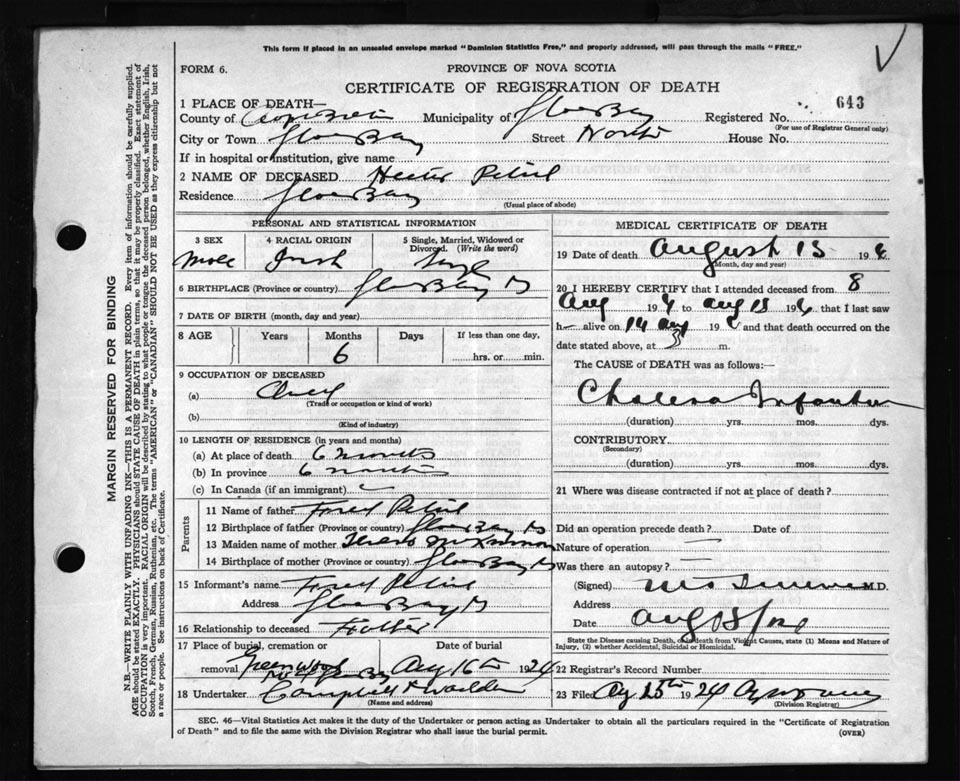 This form if placed in an unsealed envelope marked "Dominion Statistics Free," and properly addressed, will pass through the mails "FREE."
FORM 6.
PROVINCE OF NOVA SCOTIA
CERTIFICATE OF REGISTRATION OF DEATH
643
1 PLACE OF DEATH—
County of Cape Breton Municipality of Glace Bay Registered No.
(For use of Registrar General only)
City or Town Glace Bay Street North House No.
If in hospital or institution, give name
2 NAME OF DECEASED Hector
Residence Glace Bay
(Usual place of abode)
PERSONAL AND STATISTICAL INFORMATION
3 SEX 4 RACIAL ORIGIN 5 Single, Married, Widowed or Divorced. (Write the word)
Male Irish Single
6 BIRTHPLACE (Province or country) Glace Bay
7 DATE OF BIRTH (month, day and year)
8 AGE Years Months Days If less than one day,
6 hrs. or min.
9 OCCUPATION OF DECEASED
(a) Child
(Trade or occupation or kind of work)
(b)
(Kind of industry)
10 LENGTH OF RESIDENCE (in years and months)
(a) At place of death 6 months
(b) In province 6 months
(c) In Canada (if an immigrant)
Parents
11 Name of father
12 Birthplace of father (Province or country) Glace Bay
13 Maiden name of mother
14 Birthplace of mother (Province or country) Glace Bay
15 Informant's name
Address Glace Bay
16 Relationship to deceased Father
17 Place of burial, cremation or Date of burial
removal Greenwood Aug 16th 1926
18 Undertaker Campbell
(Name and address)
MEDICAL CERTIFICATE OF DEATH
19 Date of death August 15 192
(Month, day and year)
20 I HEREBY CERTIFY that I attended deceased from 8
Aug 19 to Aug 19 that I last saw
h alive on 14 Aug 19 and that death occurred on
date stated above, at 3 m.
The CAUSE of DEATH was as follows:—
Cholera Infantum
(duration) yrs. mos. dys.
CONTRIBUTORY
(Secondary)
(duration) yrs. mos. dys.
21 Where was disease contracted if not at place of death?
Did an operation precede death? Date of
Nature of operation
Was there an autopsy?
(Signed) M.D.
Address
Date Aug
State the Disease causing Death, or in death from Violent Causes, state (1) Means and Nature of Injury, (2) whether Accidental, Suicidal or Homicidal.
22 Registrar's Record Number
23 Filed 192
(Division Registrar)
SEC. 46—Vital Statistics Act makes it the duty of the Undertaker or person acting as Undertaker to obtain all the particulars required in the "Certificate of Registration
of Death" and to file the same with the Division Registrar who shall issue the burial permit. (OVER)
MARGIN RESERVED FOR BINDING
N.B.—WRITE PLAINLY WITH UNFADING INK—THIS IS A PERMANENT RECORD. Every item of information should be carefully supplied.
AGE should be stated EXACTLY. PHYSICIANS should STATE CAUSE OF DEATH in plain terms, so that it may be properly classified. Exact statement of
OCCUPATION is very important. RACIAL ORIGIN will be described by stating to what people or tongue the deceased person belonged, whether English, Irish,
Scotch, French, German, Russian, Ruthenian, etc. The terms "AMERICAN" or "CANADIAN" SHOULD NOT BE USED as they express citizenship but not
a race or people. See instructions on back of Certificate.